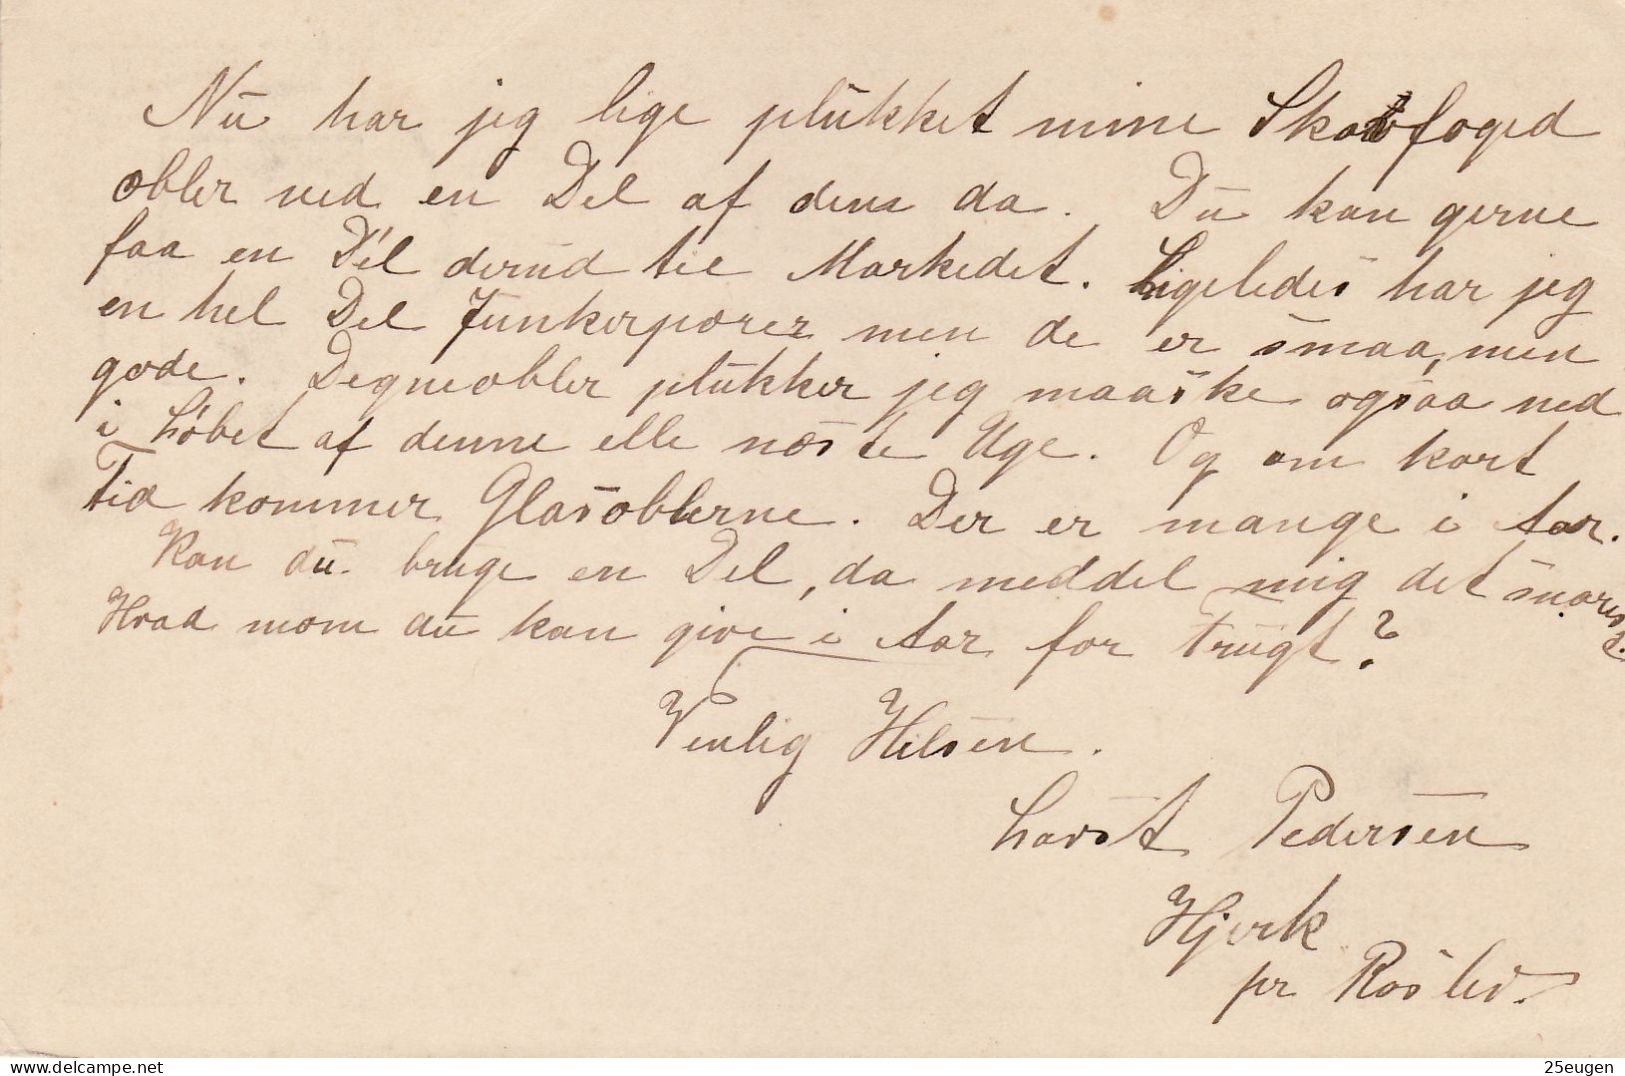 Nu har jeg lige plukket mine Skovfoged
æbler ned en Del af dem da. Du kan gerne
faa en Del derud til Markedet. Ligeledes har jeg
en hel Del Junkerpærer men de er smaa, men
gode. Degneæbler plukker jeg maaske ogsaa ned
i Løbet af denne elle næste Uge. Og om kort
Tid kommer Glasæblerne. Der er mange i Aar.
Kan du bruge en Del, da meddel mig det snarest.
Hvad mom du kan give i Aar for Frugt?
Venlig Hilsen.
Pedersen
Hjerk
pr Roslev.
25eugen